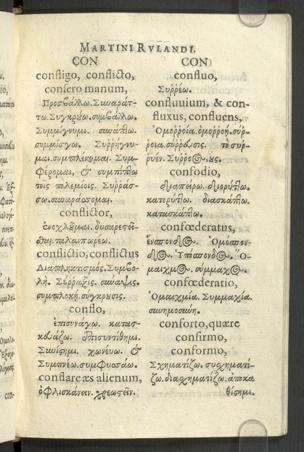 MARTINI RVLANDI.
CON
confligo, conflicto,
consero manum,
Προσβάλλω. Συναράτ-
τω. Συγκρύω. συμβάλλω.
Συμμίγνυμι. συνάπτω.
συμμίσγω. Συρρήγνυ-
μαι. συμπλέκομαι. Συμ-
φέρομαι, & συμπίπτω
τοῖς πολεμίοις. Συῤῥάσ-
σω. συναράσσομαι.
conflictor,
ἐνοχλοῦμαι. δυσαρεστέ-
ομαι. ταλαιπωρέω.
conflictio, conflictus
Διαπληκτισμός. Συμβο-
λή. Σύῤῥαξις.
συμπλοκή. σύγκρουσις.
conflo,
ἐπισυνάγω. κατασ-
κευάζω.
Συνίστημι. χωνεύω. &
Συμπνέω. συμφυσάω.
conflare æs alienum,
ὀφλισκάνειν. χρεωστεῖν.
CON
confluo,
Συῤῥέω.
confluuium, & con-
fluxus, confluens,
Ὁμόῤῥοια. ὁμοῤῥοή. σύρ-
ροια. σύῤῥευσις. τὸ συῤ-
ῥυέν. Σύῤῥοος, ους.
confodio,
διαπείρω. διορύττω.
κατορύττω. διασκάπτω.
κατασκάπτω.
confœderatus,
ἔνσπονδος. Ὁμόσπον-
δος. Ὑπόσπονδος. Ὁ-
μαιχμος. σύμμαχος.
confœderatio,
Ὁμαιχμία. Συμμαχία.
συνωμοσίη.
conforto, quære
confirmo,
conformo,
Σχηματίζω. συσχηματί-
ζω. διασχηματίζω. ἀποκα-
θίστημι.